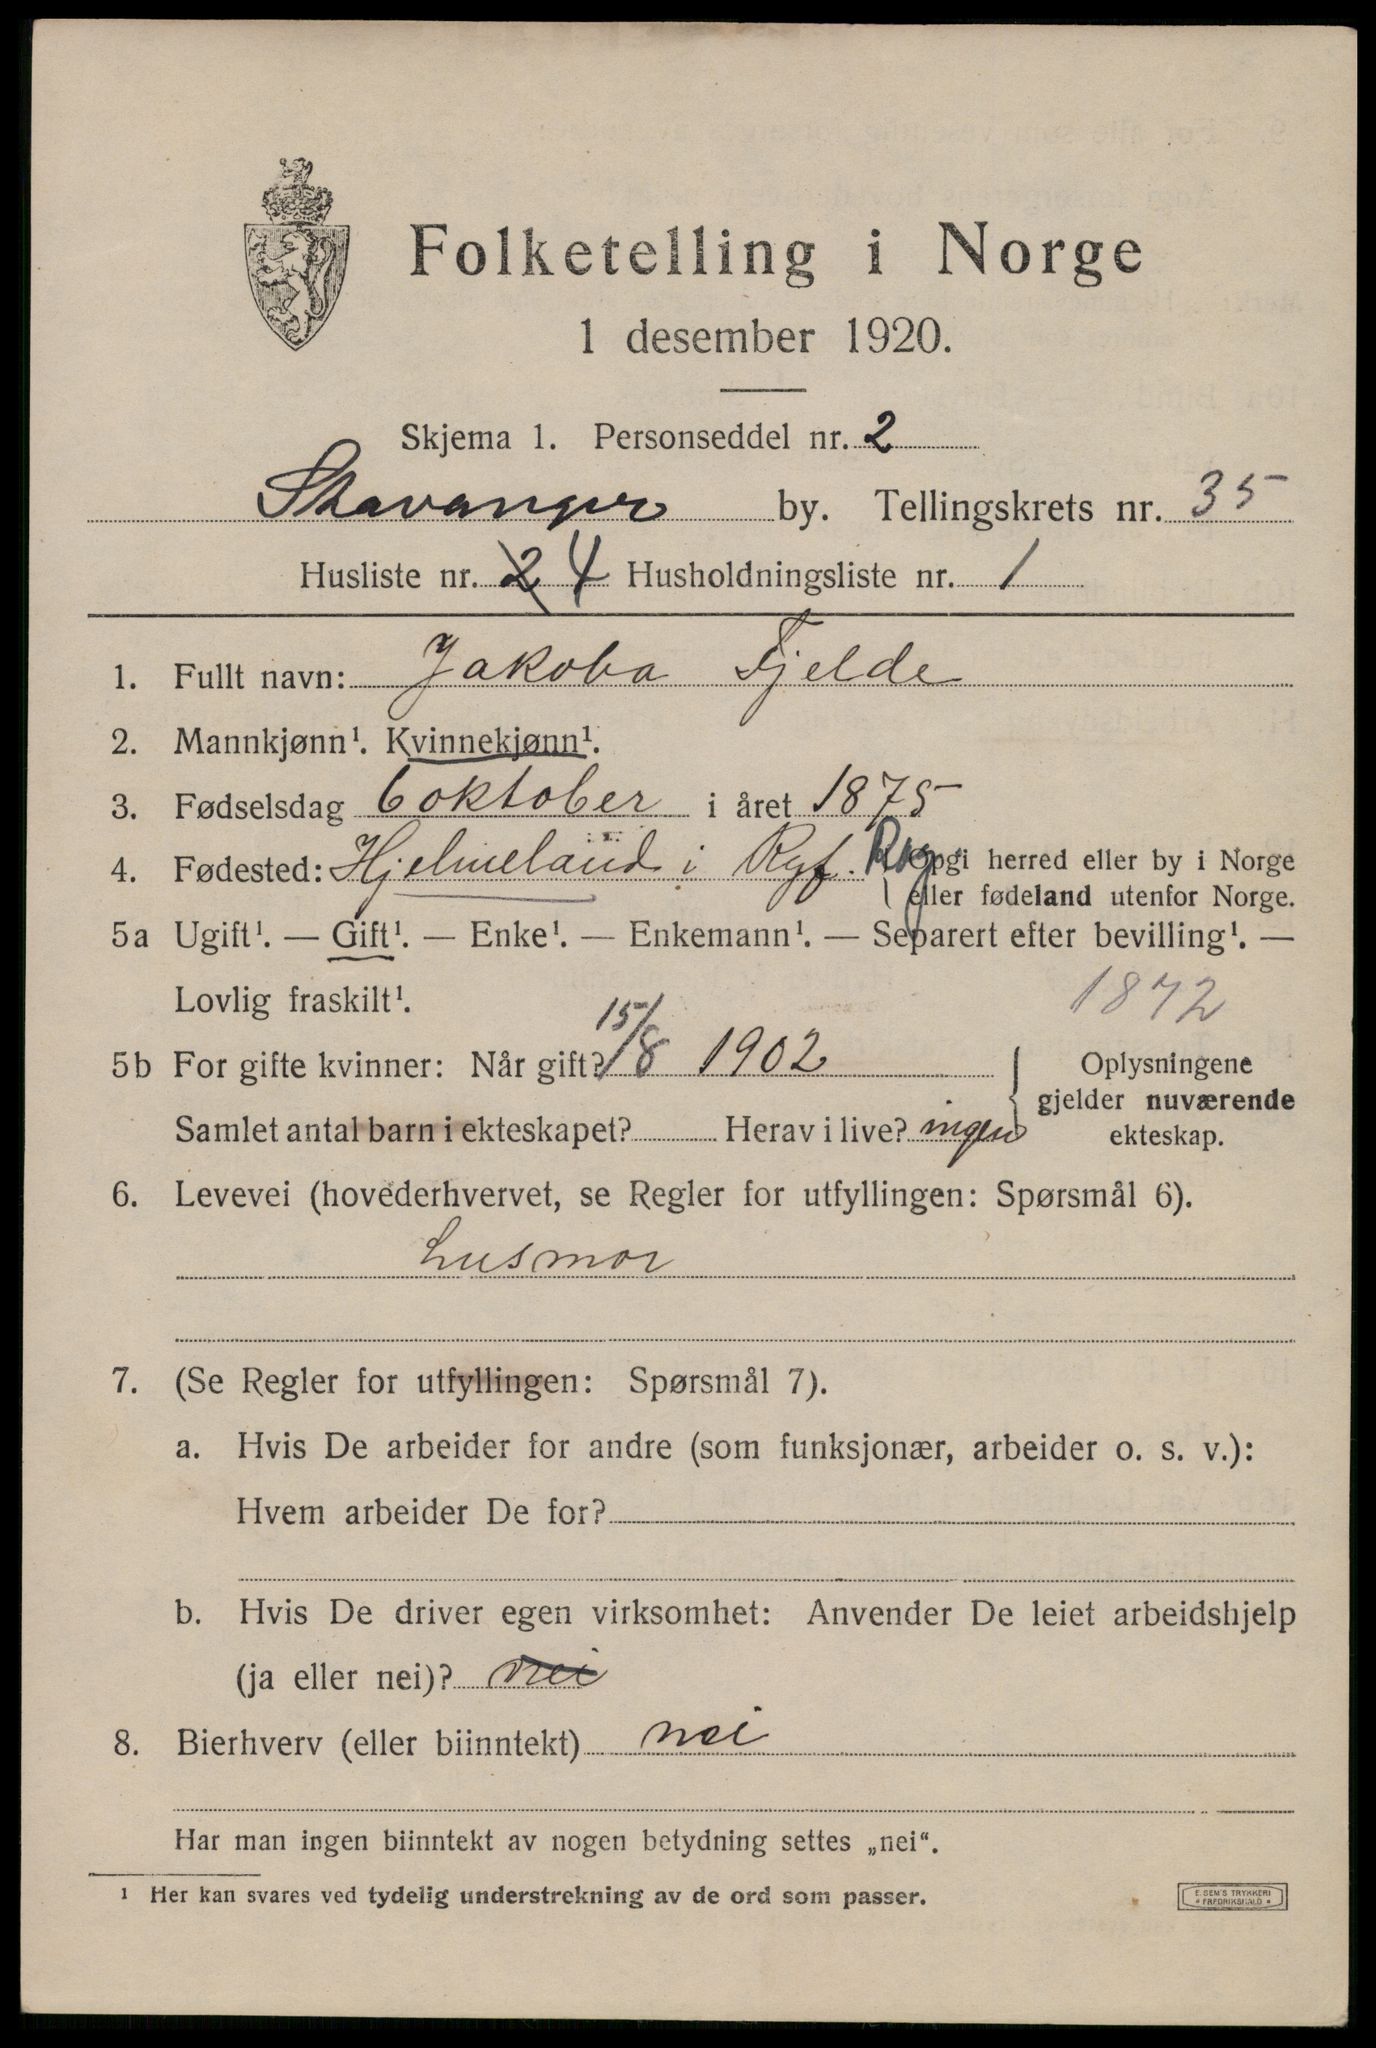 Folketelling i Norge
1 desember 1920.
Skjema 1. Personseddel nr. 2
Stavanger by. Tellingskrets nr. 35
Husliste nr. 2 4 Husholdningsliste nr. 1
1. Fullt navn: Jakoba Fjelde
2. Mannkjønn¹. Kvinnekjønn¹.
3. Fødselsdag 6 oktober i året 1875
4. Fødested: Hjelmeland i Ryf. Rog. Opgi herred eller by i Norge
eller fødeland utenfor Norge.
5a Ugift¹. — Gift¹. — Enke¹. — Enkemann¹. — Separert efter bevilling¹. —
Lovlig fraskilt¹. 1872
5b For gifte kvinner: Når gift? 15/8 1902 Oplysningene
gjelder nuværende
Samlet antal barn i ekteskapet? Herav i live? ingen ekteskap.
6. Levevei (hovederhvervet, se Regler for utfyllingen: Spørsmål 6).
husmor
7. (Se Regler for utfyllingen: Spørsmål 7).
a. Hvis De arbeider for andre (som funksjonær, arbeider o. s. v.):
Hvem arbeider De for?
b. Hvis De driver egen virksomhet: Anvender De leiet arbeidshjelp
(ja eller nei)? nei
8. Bierhverv (eller biinntekt) nei
Har man ingen biinntekt av nogen betydning settes „nei“.
¹ Her kan svares ved tydelig understrekning av de ord som passer.
E. SEM'S TRYKKERI
FREDRIKSHALD